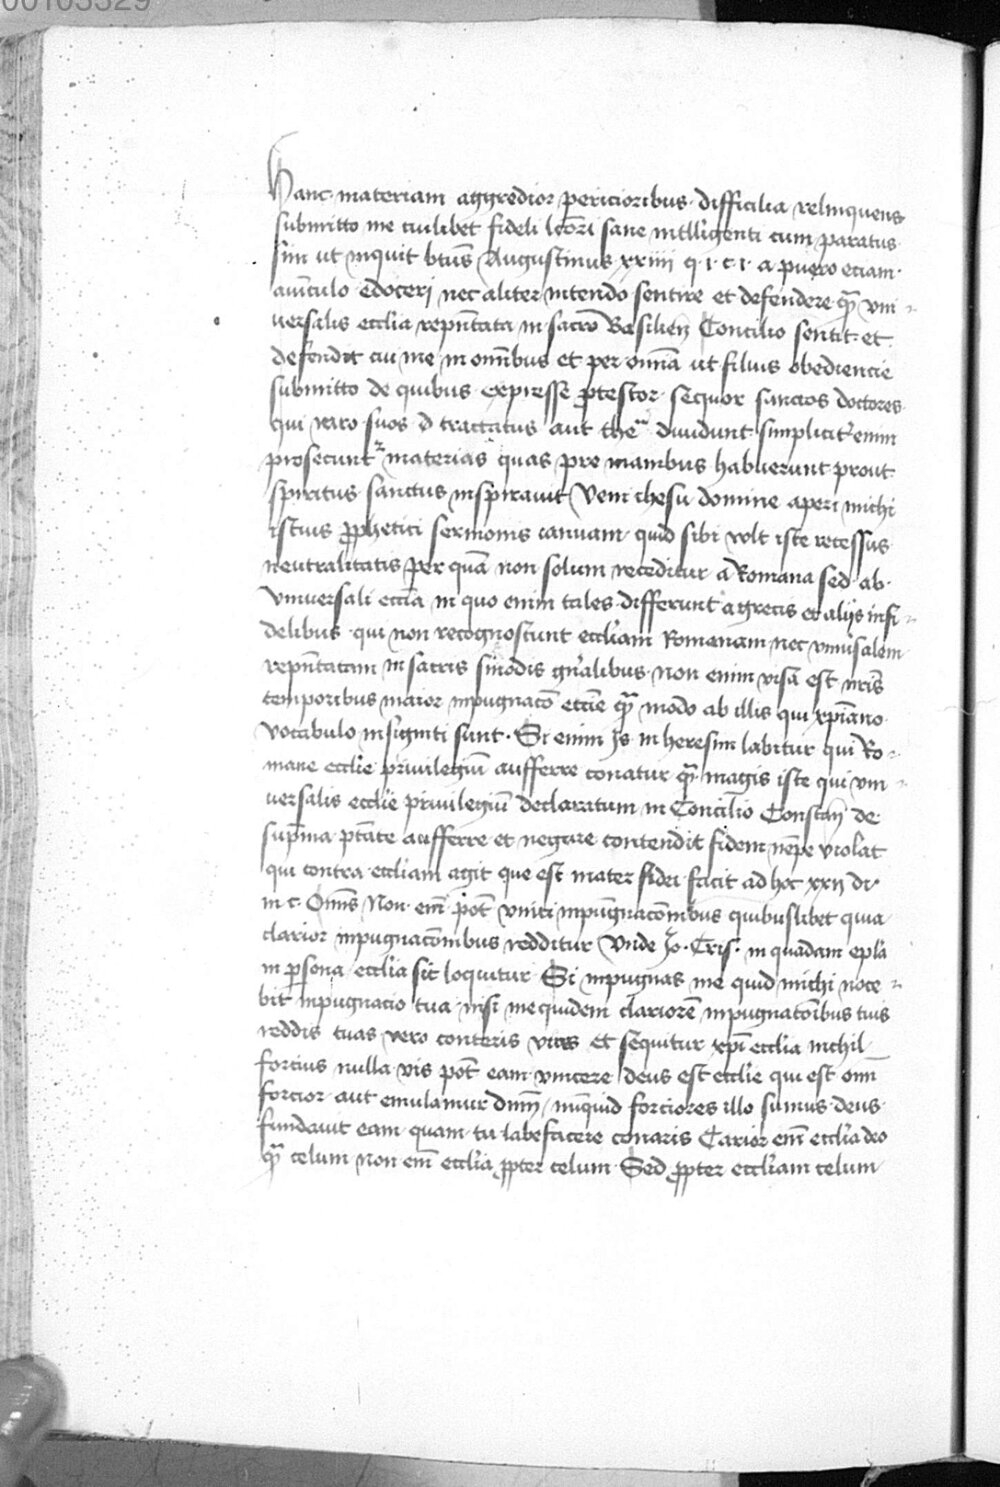 00103529
Hanc materiam aggredior pericioribus difficilia relinquens
submitto me cuilibet fideli lectori sane intelligenti cum paratus
sim ut inquit btus Augustinus xxiiii q. 1. c. 1. a puero eciam
anniculo edoceri nec aliter intendo sentire et defendere qz vni
uersalis ecclia repntata in sacro Basilien Concilio sentit et
defendit cui me in omnibus et per omnia ut filius obediencie
submitto de quibus expresse protestor sequor sanctos doctores
qui raro suos tractatus aut diuidunt simplicit enim
prosecunt materias quas pre manibus habuerunt prout
spiritus sanctus inspirauit Veni ihesu domine aperi michi
istius prophetici sermonis ianuam quid sibi vlt iste recessus
neutralitatis per qua non solum receditur a Romana sed ab
Vniuersali eccia in quo enim tales differunt a grecis et alijs infi
delibus qui non recognoscunt eccliam Romanam nec vniusalem
repntatam in sacris sinodis gnalibus non enim visa est nris
temporibus maior inpugnaco eccie qz modo ab illis qui xpiano
vocabulo insigniti sunt. Si enim is in heresim labitur qui Ro
mane ecclie priuilegiu aufferre conatur qz magis iste qui vni
uersalis ecclie priuilegiu declaratum in Concilio Constan de
suprema ptate aufferre et negare contendit fidem nepe violat
qui contra eccliam agit que est mater fidei facit ad hoc xxii di
in c. Omnes Non em pot vinci inpugnacionibus quibuslibet quia
clarior inpugnacionibus redditur Vnde Jo. Cris. in quadam epla
in persona ecclia sic loquitur Si inpugnas me quid michi noce
bit inpugnacio tua nisi me quidem clariore inpugnationibus tuis
reddis tuas vero conteris vires et sequitur xpi ecclia nichil
forcius nulla vis pot eam vincere deus est ecclie qui est omni
forcior aut emulamur dnm nunquid forciores illo sumus deus
fundauit eam quam tu labefacere conaris Carior em ecclia deo
qz celum non em ecclia propter celum Sed propter eccliam celum